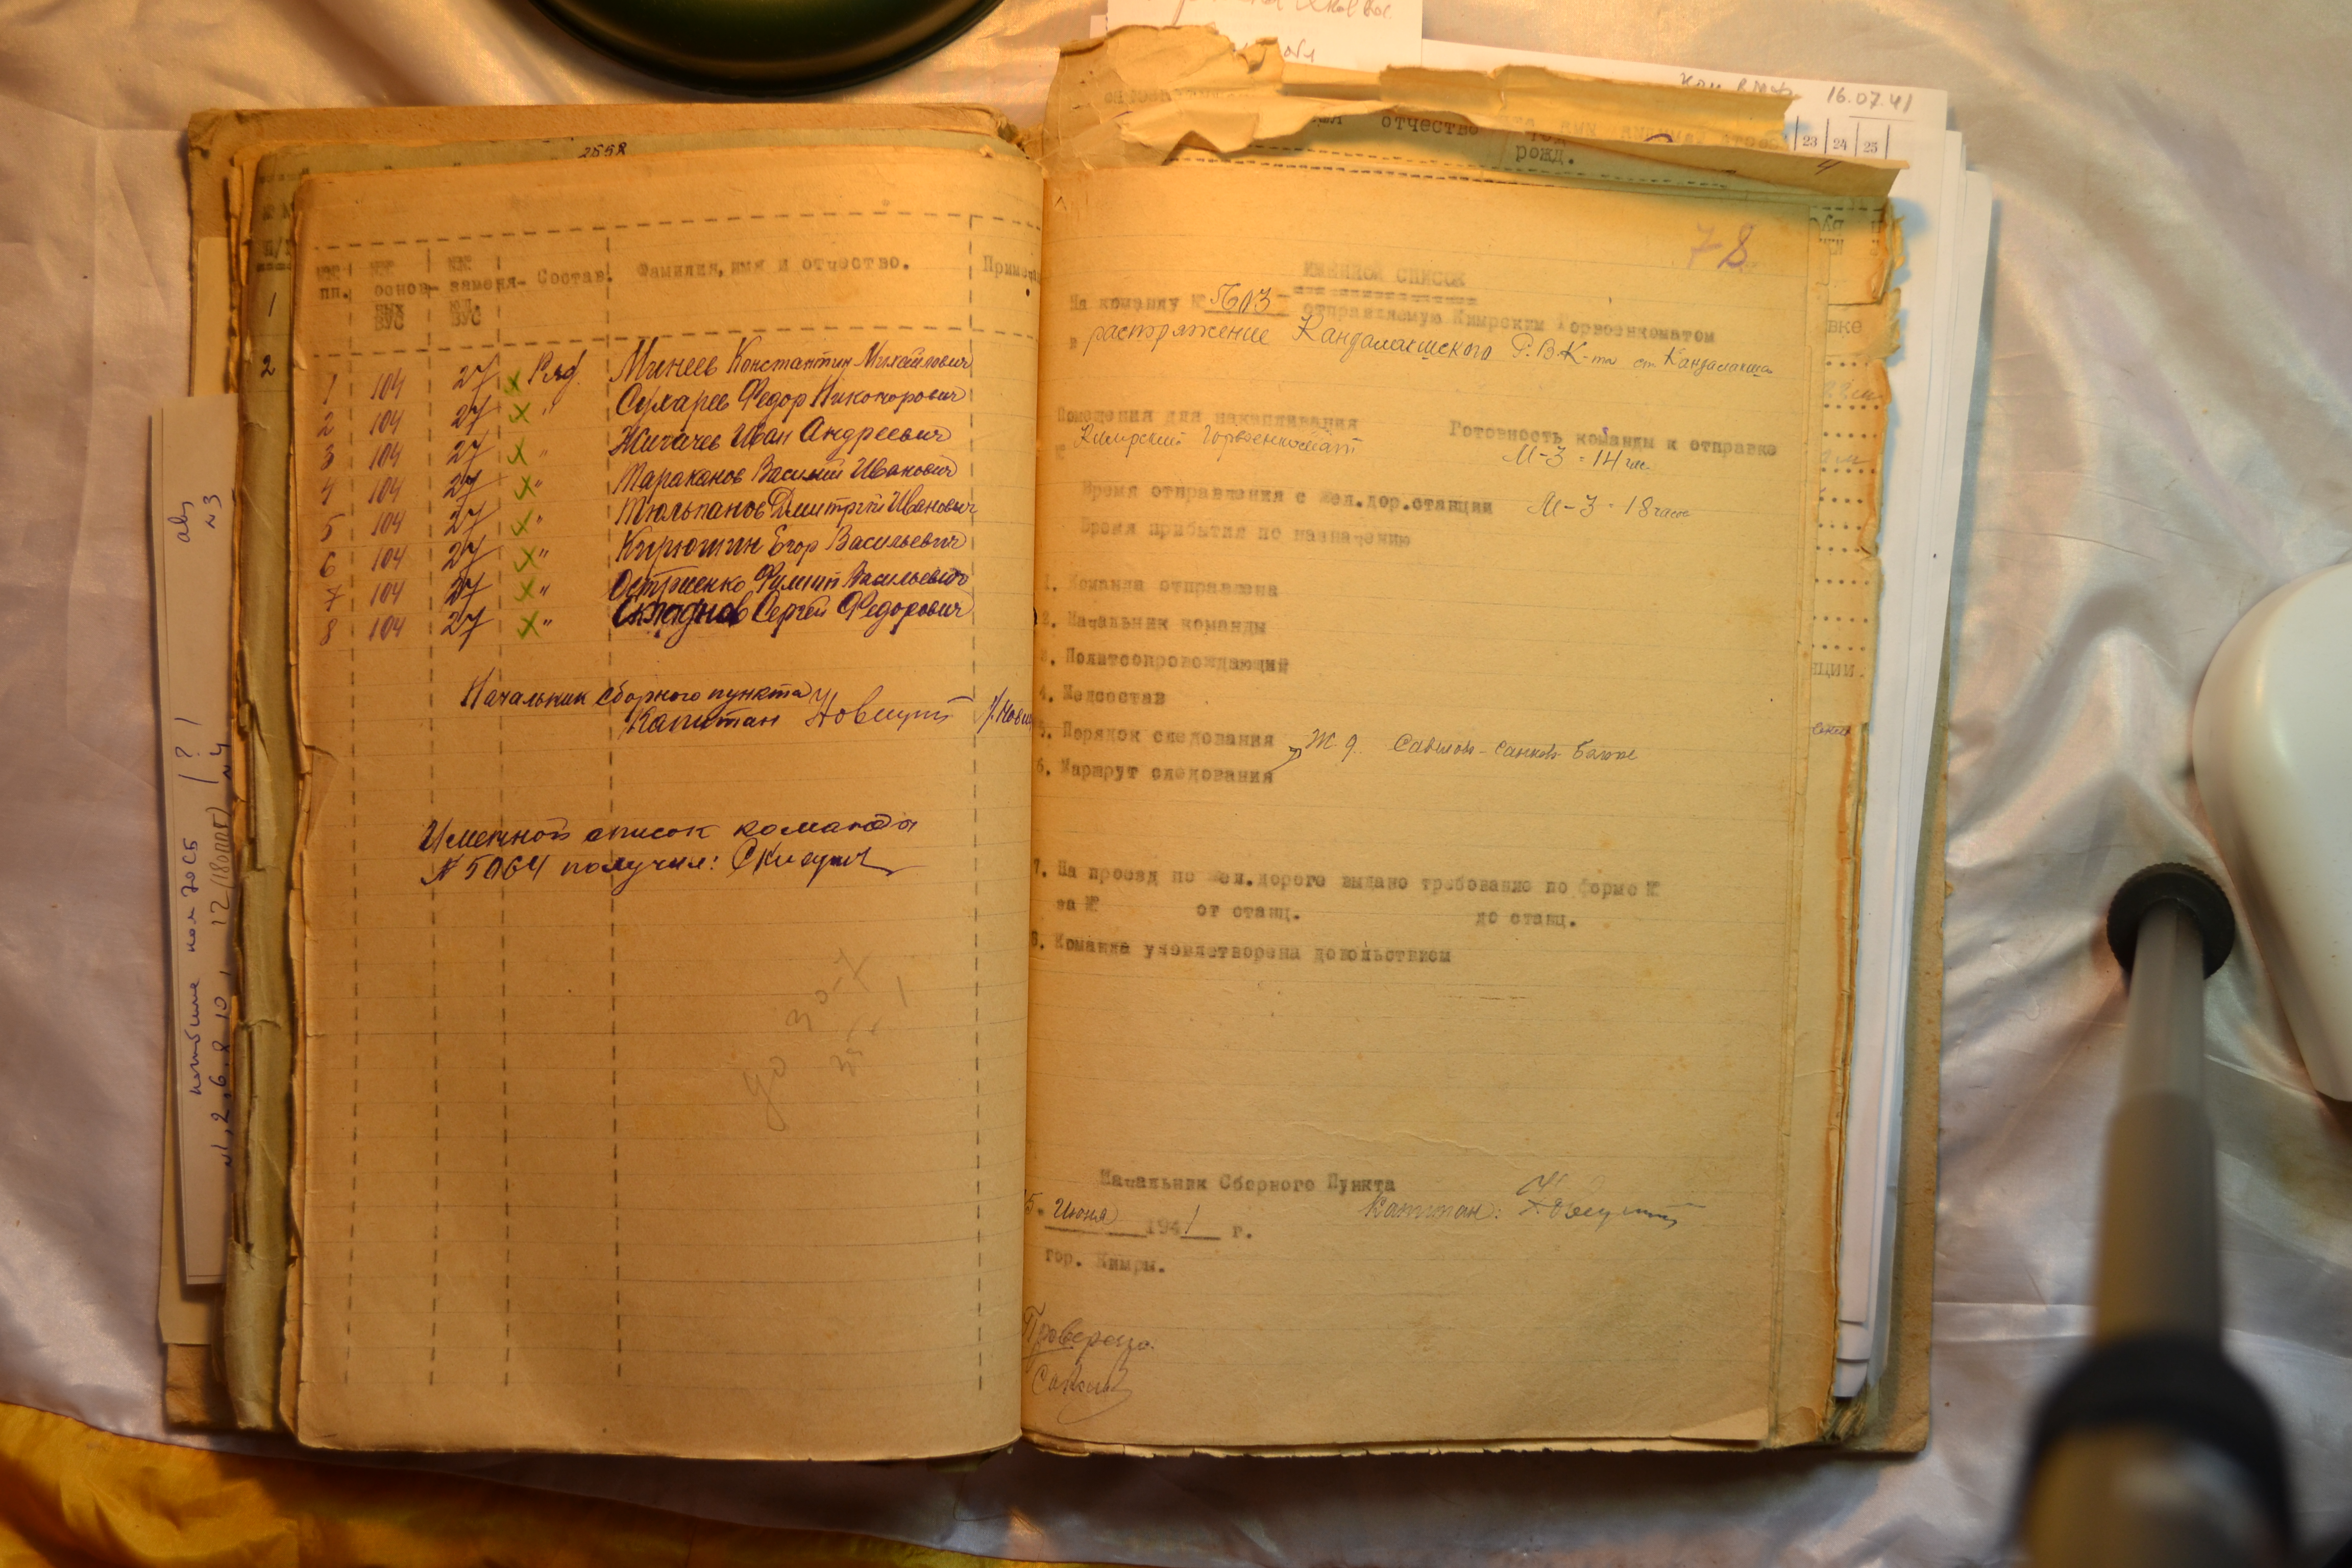 2558
№№ пп.
№№ основ- ных ВУС
№№ заменя- ющ. ВУС
Состав.
Фамилия, имя и отчество.
1 104 27 х Ряд. Минеев Константин Михайлович
2 104 27 х " Сухарев Федор Никонорович
3 104 27 х " Жигачев Иван Андреевич
4 104 27 х " Тараканов Василий Иванович
5 104 27 х " Тюльпанов Дмитрий Иванович
6 104 27 х " Кирюшин Егор Васильевич
7 104 27 х " Остриенко Филипп Васильевич
8 104 27 х " Сергей Федорович
Начальник сборного пункта
Капитан
Именной список команда
№ 5064 получил:
до 30-7
35
1
2
78
ИМЕННОЙ СПИСОК
На команду № 5603 - отправляемую Кимрским Горвоенкоматом
в распоряжение Кандалакшского Р.В.К-та ст. Кандалакша
Помещения для накапливания
Кимрский Горвоенкомат
Готовность команды к отправке
М-3 - 14 час.
Время отправления с жел.дор.станции М-3 - 18 часов
Время прибытия по назначению
1. Команда отправлена
2. Начальник команды
3. Политсопровождающий
4. Медсостав
5. Порядок следования
Ж.д.
6. Маршрут следования
7. На проезд по жел.дороге выдано требование по форме №
за № от станц. до станц.
8. Команда удовлетворена довольствием
Начальник Сборного Пункта
5. Июня 1941 г. Капитан:
гор. Кимры.
Проверено.
отчество
рожд.
16.07.41
23 24 25
№3
№1, 2, 6, 8, 10, 12 (180 ппг) №4